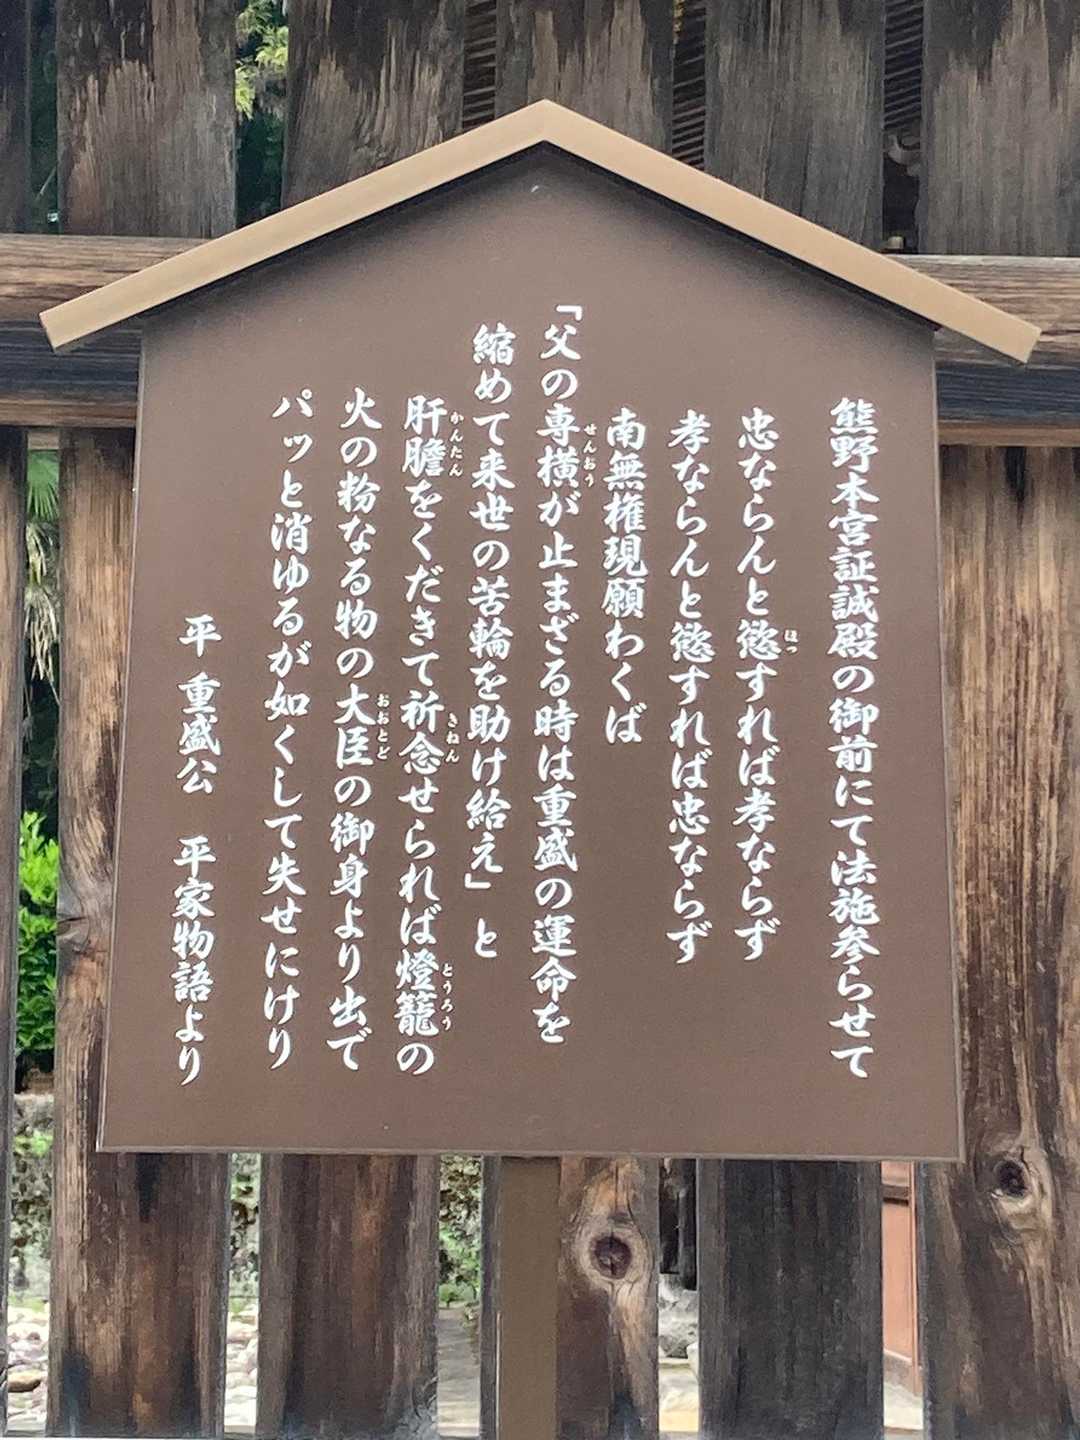 熊野本宮証誠殿の御前にて法施参らせて
忠ならんと慾すれば孝ならず
孝ならんと慾すれば忠ならず
南無権現願わくば
「父の専横が止まざる時は重盛の運命を
縮めて来世の苦輪を助け給え」と
肝膽をくだきて祈念せられば燈籠の
火の粉なる物の大臣の御身より出で
パッと消ゆるが如くして失せにけり
平 重盛公 平家物語より
ほっ
せんおう
かんたん
きねん
とうろう
おおとど